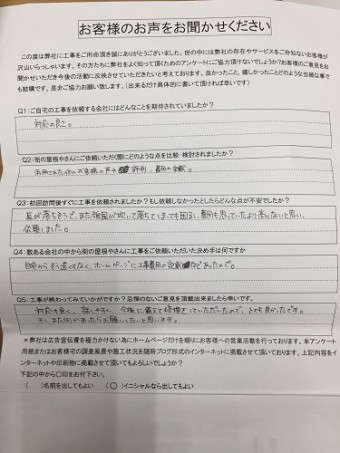 お客様のお声をお聞かせください
この度は弊社に工事をご用命頂き誠にありがとうございました。世の中には弊社の存在やサービスをご存知ないお客様が
沢山いらっしゃいます。その方たちに弊社をよく知って頂くためのアンケートにご協力頂けないでしょうか?お客様のご意見をお
聞かせいただき今後の活動に反映させていただきたいと考えております。良かったこと、嬉しかったことどのような些細な事で
も結構です。是非ご協力お願い致します。(出来るだけ具体的に書いて頂ければ幸いです)
Q1:ご自宅の工事を依頼する会社にはどんなことを期待されていましたか?
対応の良さ。
Q2:街の屋根やさんにご依頼いただく際にどのような点を比較・検討されましたか?
お客様の声 評判、費用
Q3:初回訪問後すぐに工事を依頼されましたか?もし依頼しなかったとしたらどんな点が不安でしたか?
瓦が落ちそうで、また強風が吹いて落ちてしまっても困るし、費用も思っていたより高くないと思い、
依頼しました。
Q4:数ある会社の中から街の屋根やさんに工事をご依頼いただいた決め手は何ですか
自宅からも遠くなく、ホームページに工事費用の
などあったので。
Q5:工事が終わってみていかがですか?忌憚のないご意見を頂戴出来ましたら幸いです。
対応も良く、話しやすく、今後に備えて修理をしていただいたので、とても良かったです。
また何かあったらお願いしたいと思います。
*弊社は広告宣伝費を極力かけない為にホームページだけを頼りにお客様への営業活動を行っております。本アンケート
用紙またはお客様宅の調査風景や施工状況を随時ブログ形式のインターネットに掲載させて頂いております。上記内容をイ
ンターネットや印刷物に掲載させて頂いてもよろしいでしょうか?
下記の中から〇印をお付下さい。
( )名前を出してもよい (○)イニシャルなら出してもよい